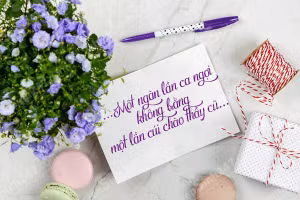 ...Một ngàn lần ca ngợi
không bằng
một lần cúi chào thầy cũ...